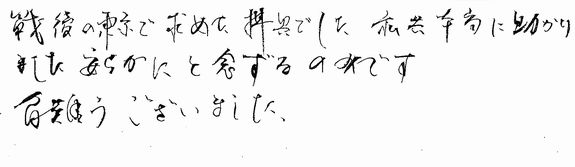 戦後の東京で求めた拝具でした 私共本当に助かり
ました 安らかにと念ずるのみです
有難うございました、